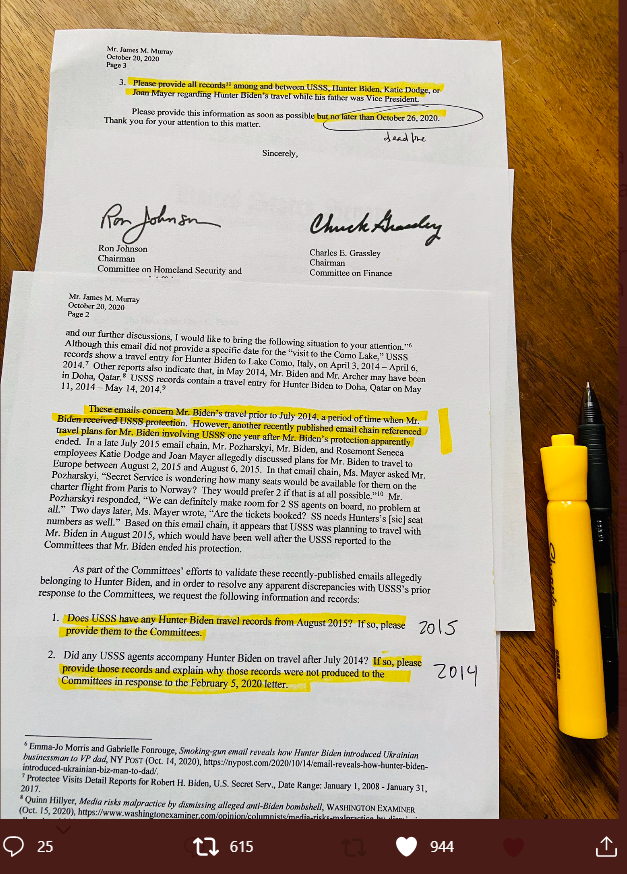 Mr. James M. Murray
October 20, 2020
Page 3
3. Please provide all records¹¹ among and between USSS, Hunter Biden, Katie Dodge, or
Joan Mayer regarding Hunter Biden's travel while his father was Vice President.
Please provide this information as soon as possible but no later than October 26, 2020.
Thank you for your attention to this matter.
deadline
Sincerely,
Ron Johnson
Chuck Grassley
Ron Johnson
Charles E. Grassley
Chairman
Chairman
Committee on Homeland Security and
Committee on Finance
Mr. James M. Murray
October 20, 2020
Page 2
and our further discussions, I would like to bring the following situation to your attention."⁶
Although this email did not provide a specific date for the "visit to the Como Lake," USSS
records show a travel entry for Hunter Biden to Lake Como, Italy, on April 3, 2014 – April 6,
2014.⁷ Other reports also indicate that, in May 2014, Mr. Biden and Mr. Archer may have been
in Doha, Qatar.⁸ USSS records contain a travel entry for Hunter Biden to Doha, Qatar on May
11, 2014 – May 14, 2014.⁹
These emails concern Mr. Biden's travel prior to July 2014, a period of time when Mr.
Biden received USSS protection. However, another recently published email chain referenced
travel plans for Mr. Biden involving USSS one year after Mr. Biden's protection apparently
ended. In a late July 2015 email chain, Mr. Pozharskyi, Mr. Biden, and Rosemont Seneca
employees Katie Dodge and Joan Mayer allegedly discussed plans for Mr. Biden to travel to
Europe between August 2, 2015 and August 6, 2015. In that email chain, Ms. Mayer asked Mr.
Pozharskyi, "Secret Service is wondering how many seats would be available for them on the
charter flight from Paris to Norway? They would prefer 2 if that is at all possible."¹⁰ Mr.
Pozharskyi responded, "We can definitely make room for 2 SS agents on board, no problem at
all." Two days later, Ms. Mayer wrote, "Are the tickets booked? SS needs Hunters's [sic] seat
numbers as well." Based on this email chain, it appears that USSS was planning to travel with
Mr. Biden in August 2015, which would have been well after the USSS reported to the
Committees that Mr. Biden ended his protection.
As part of the Committees' efforts to validate these recently-published emails allegedly
belonging to Hunter Biden, and in order to resolve any apparent discrepancies with USSS's prior
response to the Committees, we request the following information and records:
1. Does USSS have any Hunter Biden travel records from August 2015? If so, please
provide them to the Committees.
2015
2. Did any USSS agents accompany Hunter Biden on travel after July 2014? If so, please
provide those records and explain why those records were not produced to the
Committees in response to the February 5, 2020 letter.
2014
⁶ Emma-Jo Morris and Gabrielle Fonrouge, Smoking-gun email reveals how Hunter Biden introduced Ukrainian
businessman to VP dad, NY POST (Oct. 14, 2020), https://nypost.com/2020/10/14/email-reveals-how-hunter-biden-
introduced-ukrainian-biz-man-to-dad/.
⁷ Protectee Visits Detail Reports for Robert H. Biden, U.S. Secret Serv., Date Range: January 1, 2008 - January 31,
2017.
⁸ Quinn Hillyer, Media risks malpractice by dismissing alleged anti-Biden bombshell, WASHINGTON EXAMINER
(Oct. 15, 2020), https://www.washingtonexaminer.com/opinion/columnists/media-risks-malpractice-by-
Sharpie
25
615
944